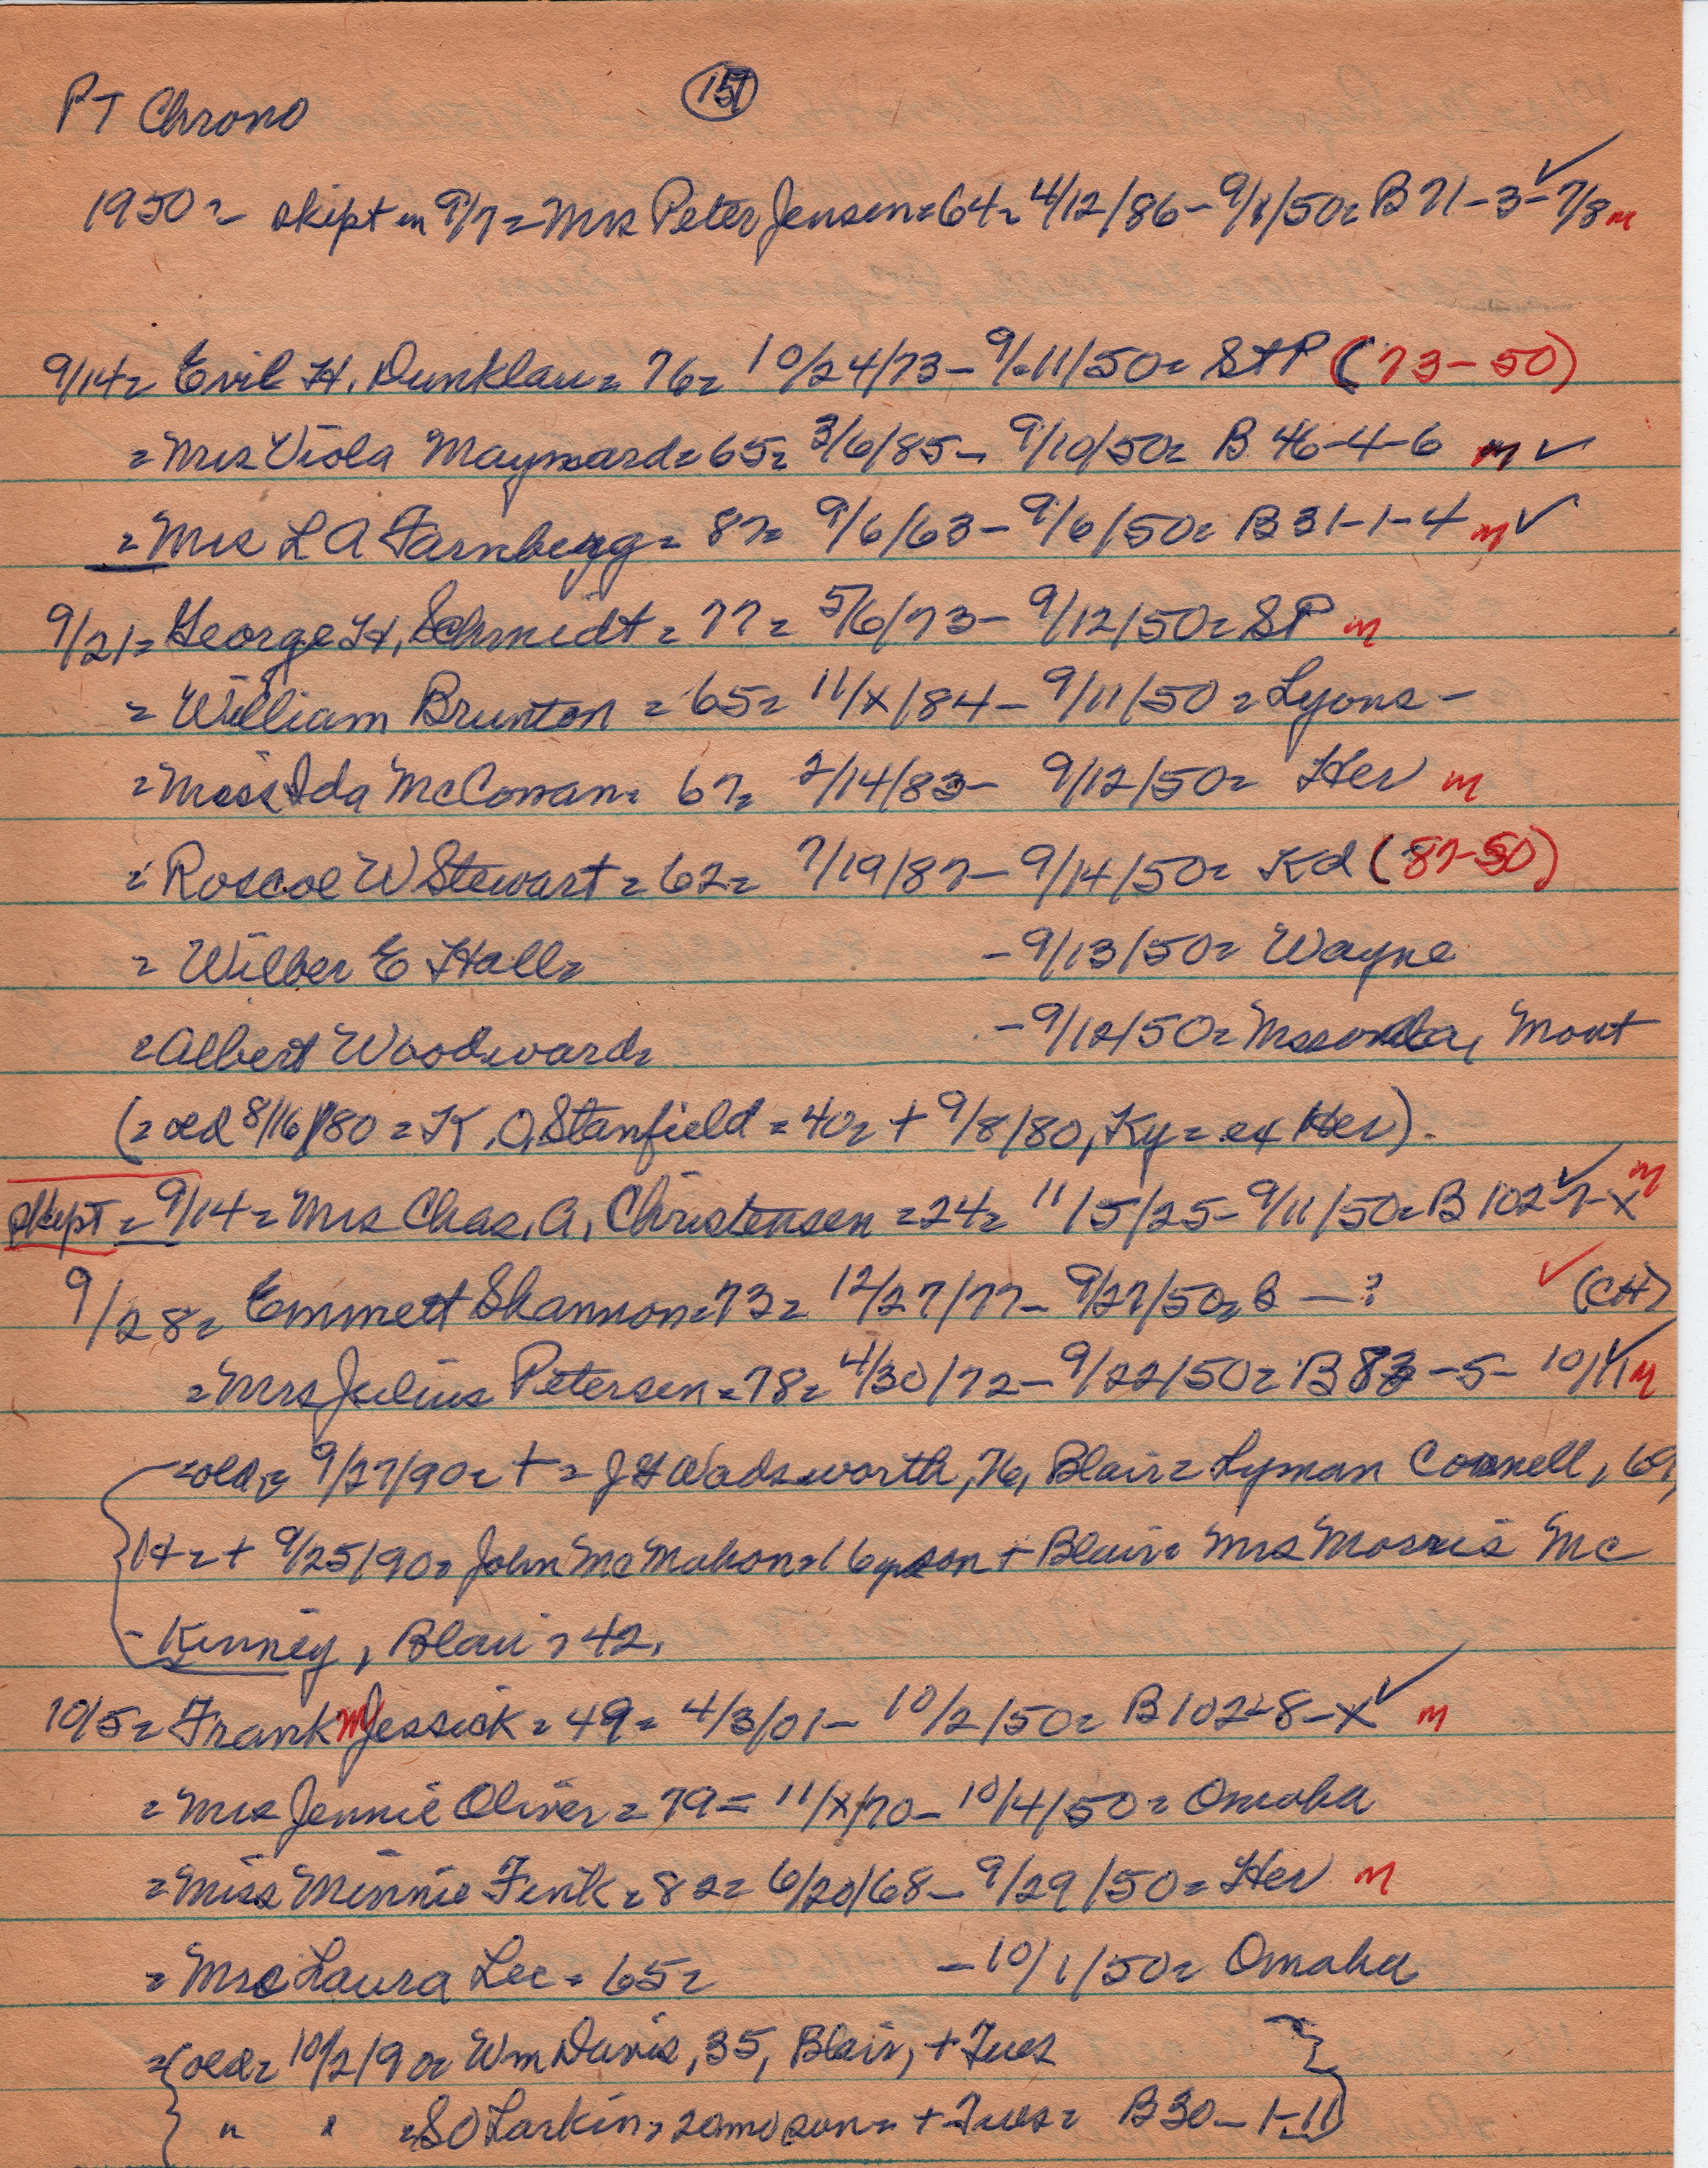 PT Chrono
157
1950 = skipt in 9/7 = Mrs Peter Jensen = 64 = 4/12/86 - 9/1/50 = B 71-3-7/8 m ✓
9/14 = Emil H. Dunklau = 76 = 10/24/73 - 9/11/50 = StP (73-50)
= Mrs Viola Maynard = 65 = 3/6/85 - 9/10/50 = B 46-4-6 m ✓
= Mrs L A Farnberg = 87 = 9/6/63 - 9/6/50 = B 31-1-4 m ✓
9/21 = George H. Schmidt = 77 = 5/6/73 - 9/12/50 = SP m
= William Brunton = 65 = 11/x/84 - 9/11/50 = Lyons -
= Miss Ida McCowan = 67 = 2/14/83 - 9/12/50 = Her m
= Roscoe W Stewart = 62 = 7/19/87 - 9/14/50 = Kd (87-50)
= Wilber E Hall = - 9/13/50 = Wayne
= Albert Woodward = - 9/12/50 = Mont
(= old 8/16/80 = K. O. Stanfield = 40 = + 9/8/80, Ky = ex Her).
skipt = 9/14 = Mrs Chas. A. Christensen = 24 = 11/5/25 - 9/11/50 = B 102-7-x ✓ m
9/28 = Emmett Shannon = 73 = 12/27/77 - 9/27/50 = B - ? ✓ (CH)
= Mrs Julius Petersen = 78 = 4/30/72 - 9/22/50 = B 83-5-10/11 ✓ m
= old = 9/27/90 = + = J H Wadsworth, 76, Blair = Lyman Connell, 69,
H = + 9/25/90 = John McMahon = 16 yr son + Blair = Mrs Morris Mc
- Kinney, Blair = 42.
10/5 = Frank M Jessick = 49 = 4/3/01 - 10/2/50 = B 102-8-x ✓ m
= Mrs Jennie Oliver = 79 = 11/x/70 - 10/4/50 = Omaha
= Miss Minnie Fink = 82 = 6/20/68 - 9/29/50 = Her m
= Mrs Laura Lee = 65 = - 10/1/50 = Omaha
= (old = 10/2/90 = Wm Davis, 35, Blair, + Tues
" " = S O Larkin = 20 mo son = + Tues = B 30-1-11)